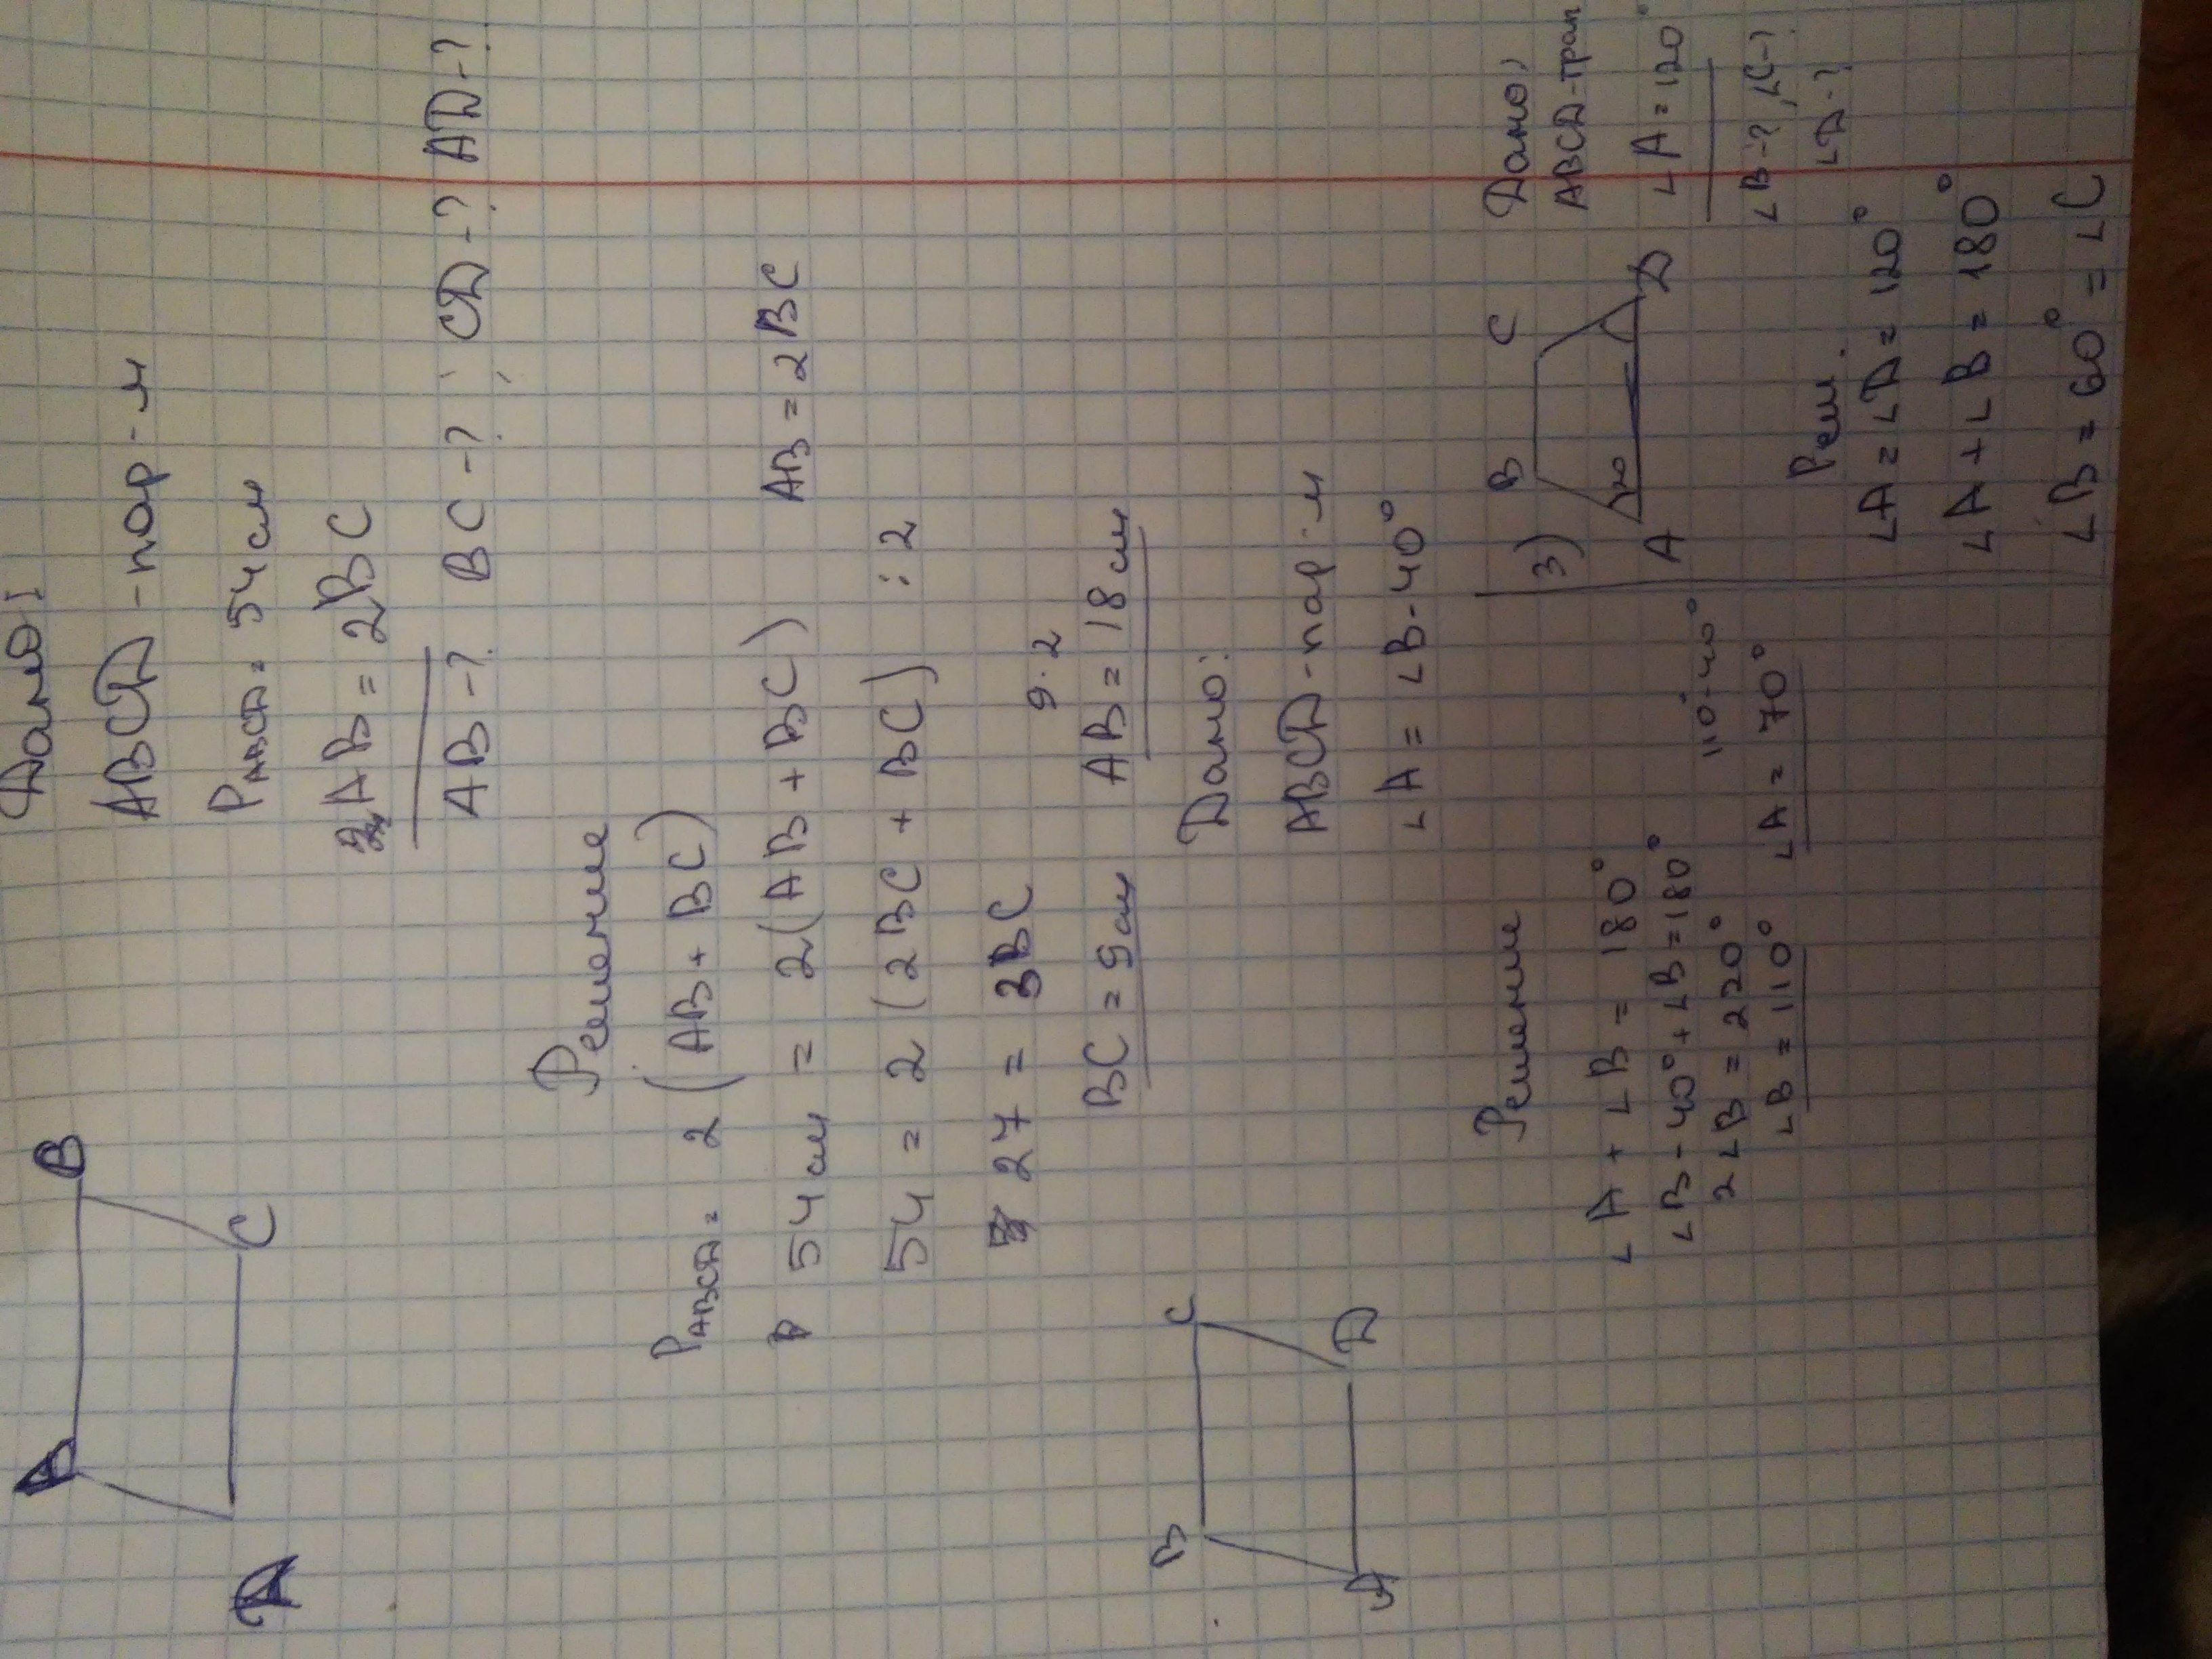 A B
D C
Дано:
ABCD - пар - м
P ABCD = 54 см
AB = 2BC
AB - ? BC - ? , CD - ? AD - ?
Решение
P ABCD = 2 (AB + BC)
54 см = 2(AB + BC) AB = 2BC
54 = 2 (2BC + BC) : 2
27 = 3BC
9 · 2
BC = 9 см AB = 18 см
B C
A D
Дано:
ABCD - пар - м
∠A = ∠B - 40°
Решение
∠A + ∠B = 180°
∠B - 40° + ∠B = 180°
2∠B = 220° 110° - 40°
∠B = 110° ∠A = 70°
3) B C
A D
120
Дано:
ABCD - трап
∠A = 120°
∠B - ?, ∠C - ?
∠D - ?
Реш.
∠A = ∠D = 120°
∠A + ∠B = 180°
∠B = 60° = ∠C